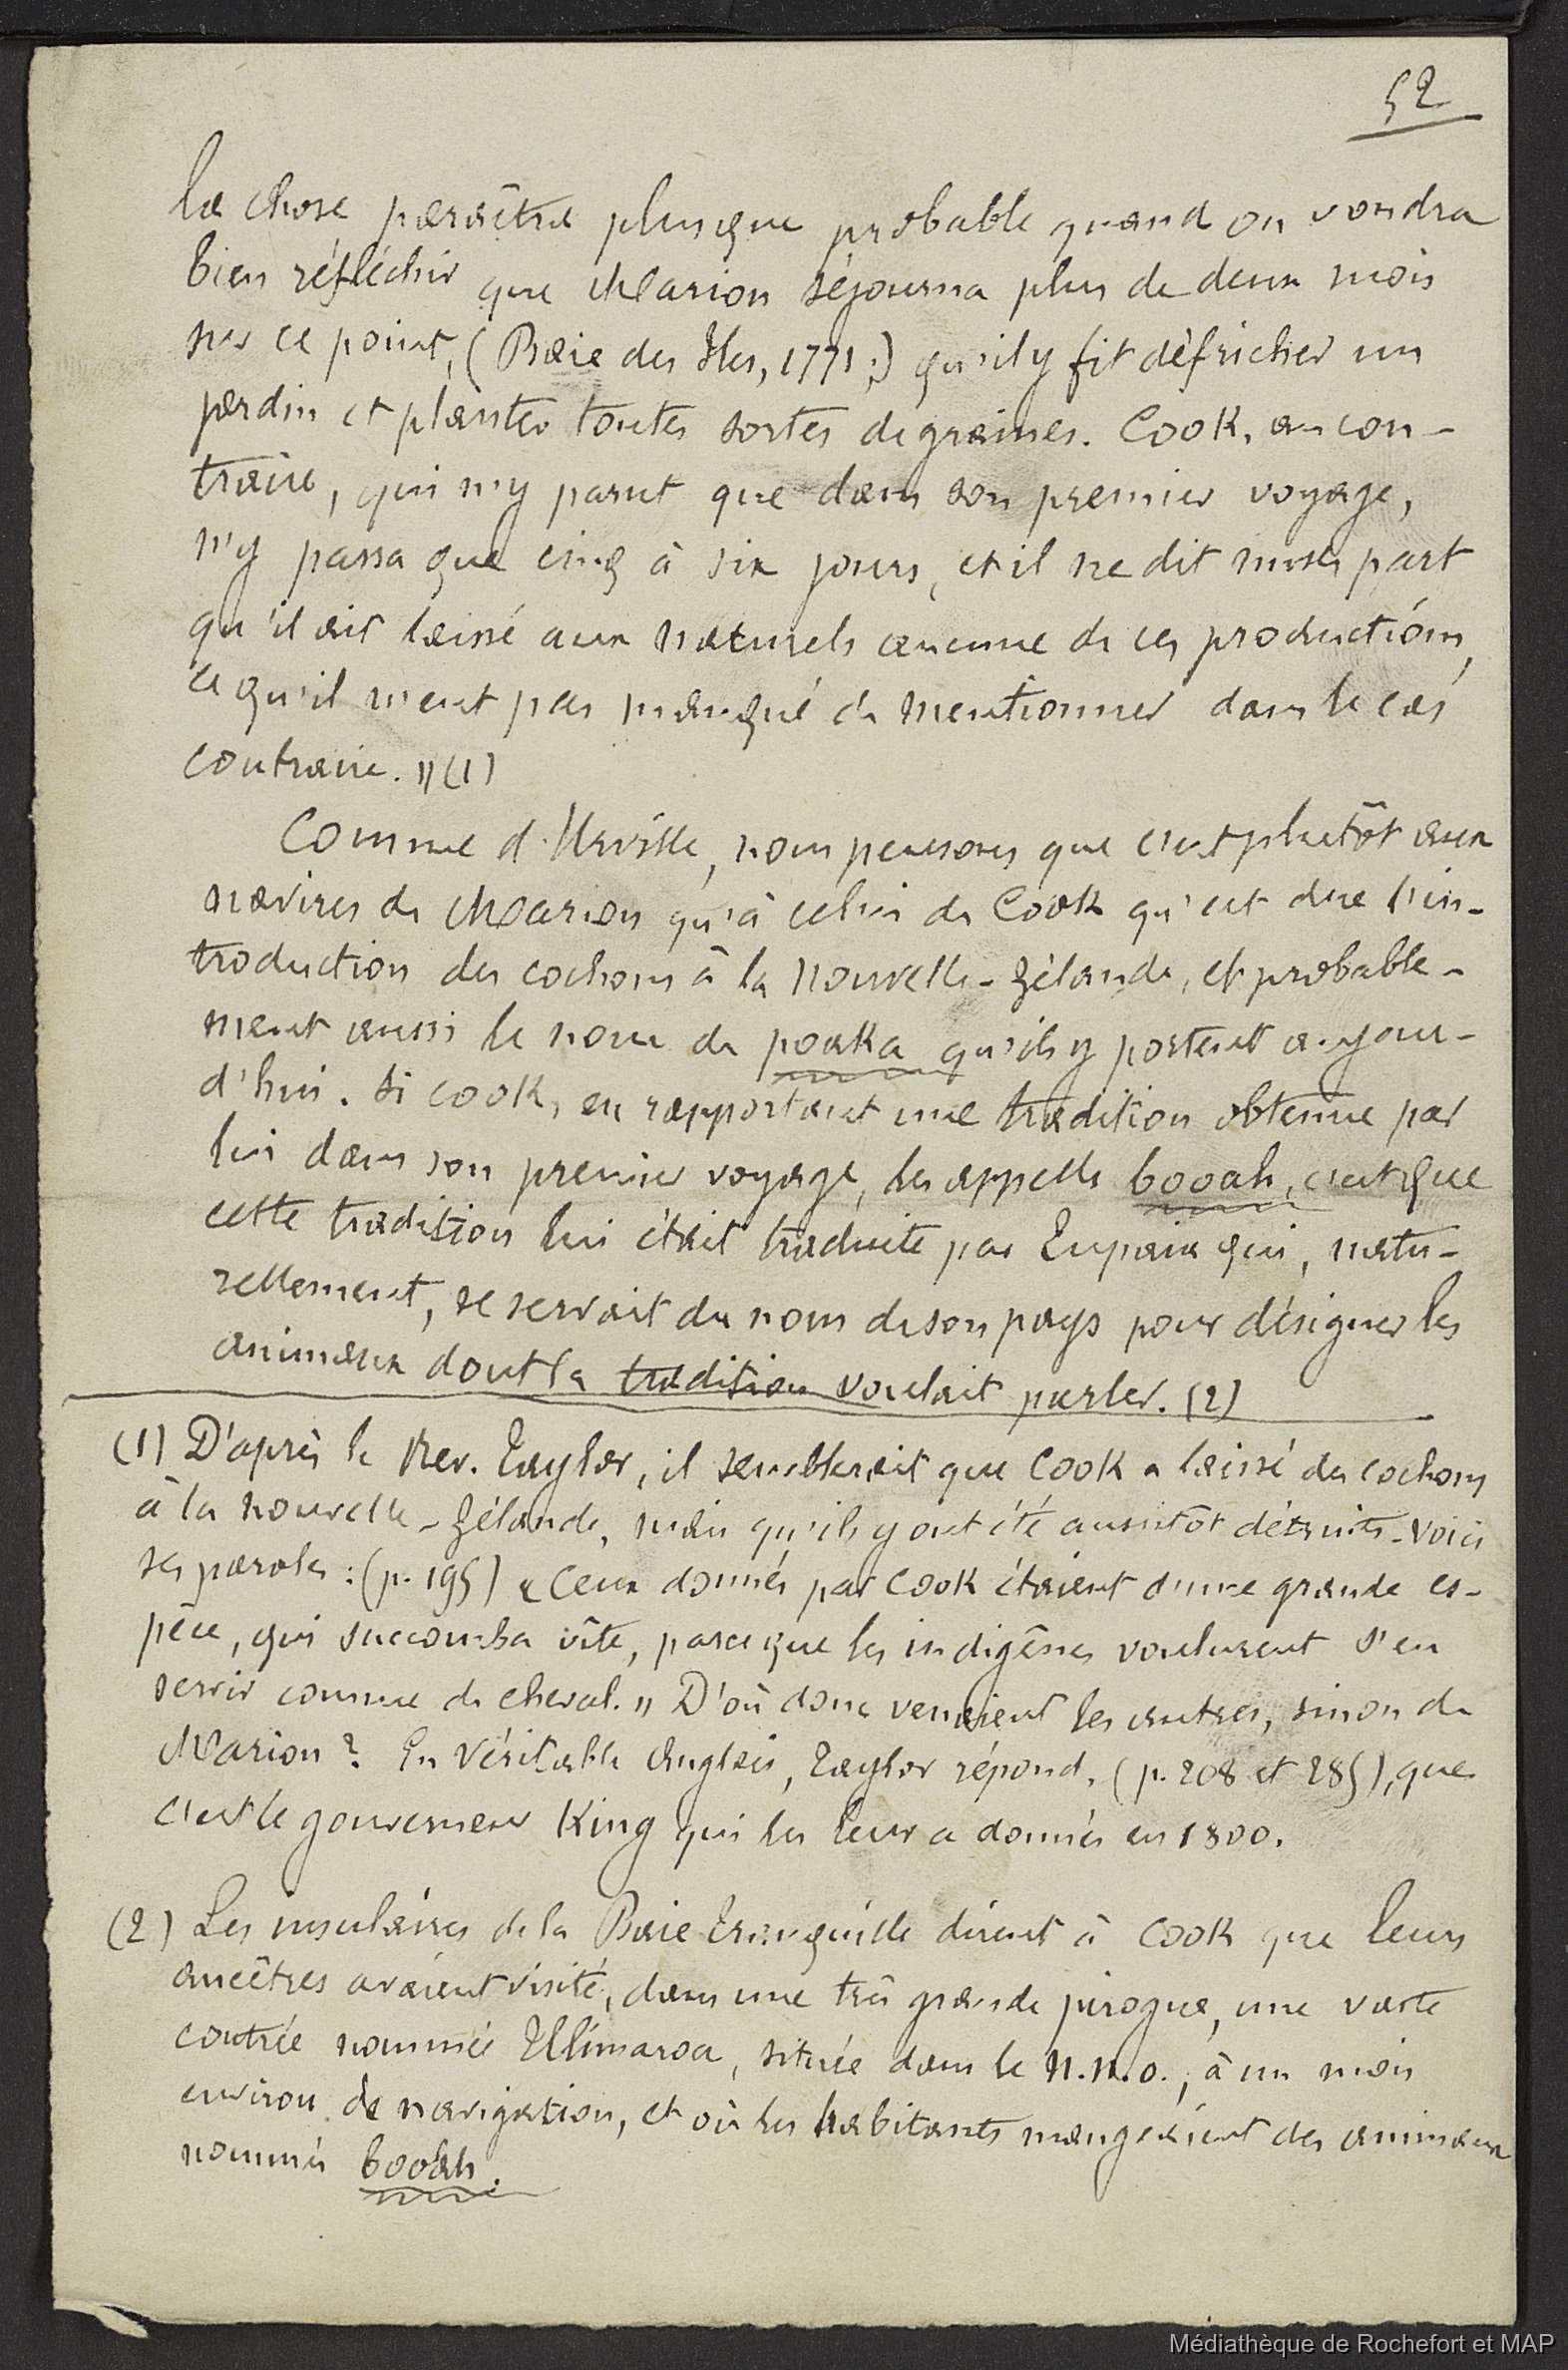 52
La chose paraîtra plus que probable quand on voudra
bien réfléchir que Marion séjourna plus de deux mois
sur ce point, (Baie des Iles, 1771;) qu'il y fit défricher un
jardin et planter toutes sortes de graines. Cook, au con-
traire, qui n'y parut que dans son premier voyage,
n'y passa que cinq à six jours, et il ne dit nulle part
qu'il ait laissé aux naturels aucune de ces productions,
ce qu'il n'eut pas manqué de mentionner dans le cas
contraire. » (1)
Comme d'Urville, nous pensons que c'est plutôt aux
navires de Marion qu'à celui de Cook qu'est due l'in-
troduction des cochons à la Nouvelle-Zélande, et probable-
ment aussi le nom de poaka qu'ils y portent aujour-
d'hui. Si Cook, en rapportant une tradition obtenue par
lui dans son premier voyage, les appelle booah, c'est que
cette tradition lui était traduite par Tupaia qui, natu-
rellement, se servait du nom de son pays pour désigner les
animaux dont la tradition voulait parler. (2)
(1) D'après le Rev. Taylor, il semblerait que Cook a laissé des cochons
à la Nouvelle-Zélande, mais qu'ils y ont été aussitôt détruits. Voici
ses paroles : (p. 195) « Ceux donnés par Cook étaient d'une grande es-
pèce, qui succomba vite, parce que les indigènes voulurent s'en
servir comme de cheval. » D'où donc venaient les autres, sinon de
Marion ? En véritable Anglais, Taylor répond, (p. 208 et 285), que
c'est le gouverneur King qui les leur a donnés en 1800.
(2) Les insulaires de la Baie Tranquille dirent à Cook que leurs
ancêtres avaient visité, dans une très grande pirogue, une vaste
contrée nommée Ulimaroa, située dans le N.N.O., à un mois
environ de navigation, et où les habitants mangeaient des animaux
nommés booah.
Médiathèque de Rochefort et MAP